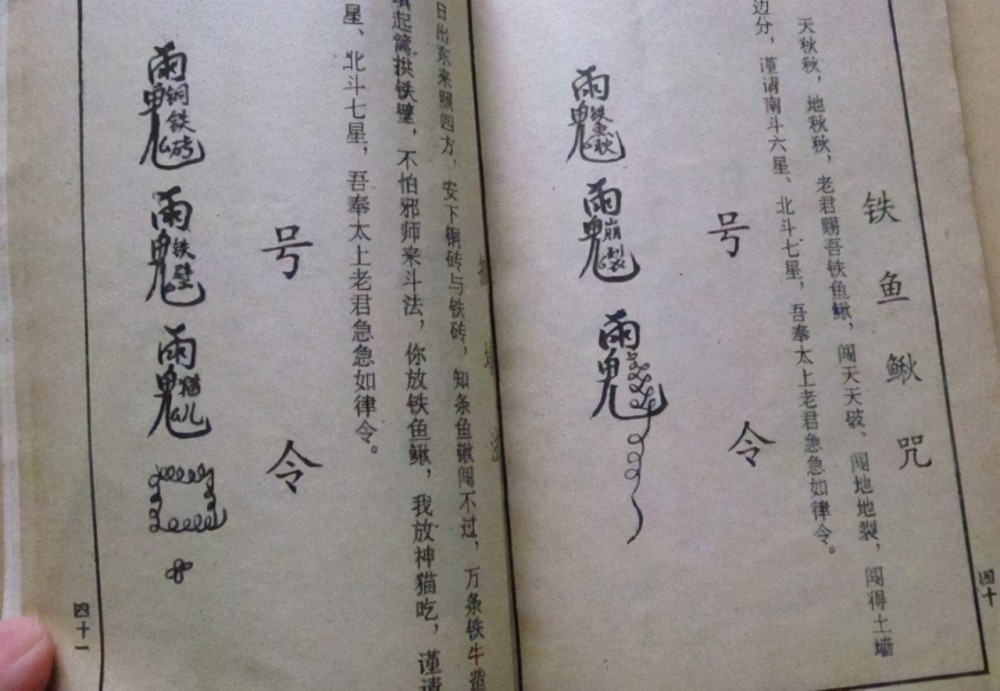 铁鱼鳅咒
天秋秋，地秋秋，老君赐吾铁鱼鳅，闯天天破、闯地地裂，闯得土墙
边分，谨请南斗六星、北斗七星，吾奉太上老君急急如律令。
号令
雨鬼铁鱼鳅
雨鬼崩裂
雨鬼
四十
日出东来照四方，安下铜砖与铁砖，知条鱼鳅闯不过，万条铁牛造
起篱拱铁壁，不怕邪师来斗法，你放铁鱼鳅，我放神猫吃，谨请
星、北斗七星，吾奉太上老君急急如律令。
号令
雨鬼铜铁砖
雨鬼铁壁
雨鬼猫儿
四十一